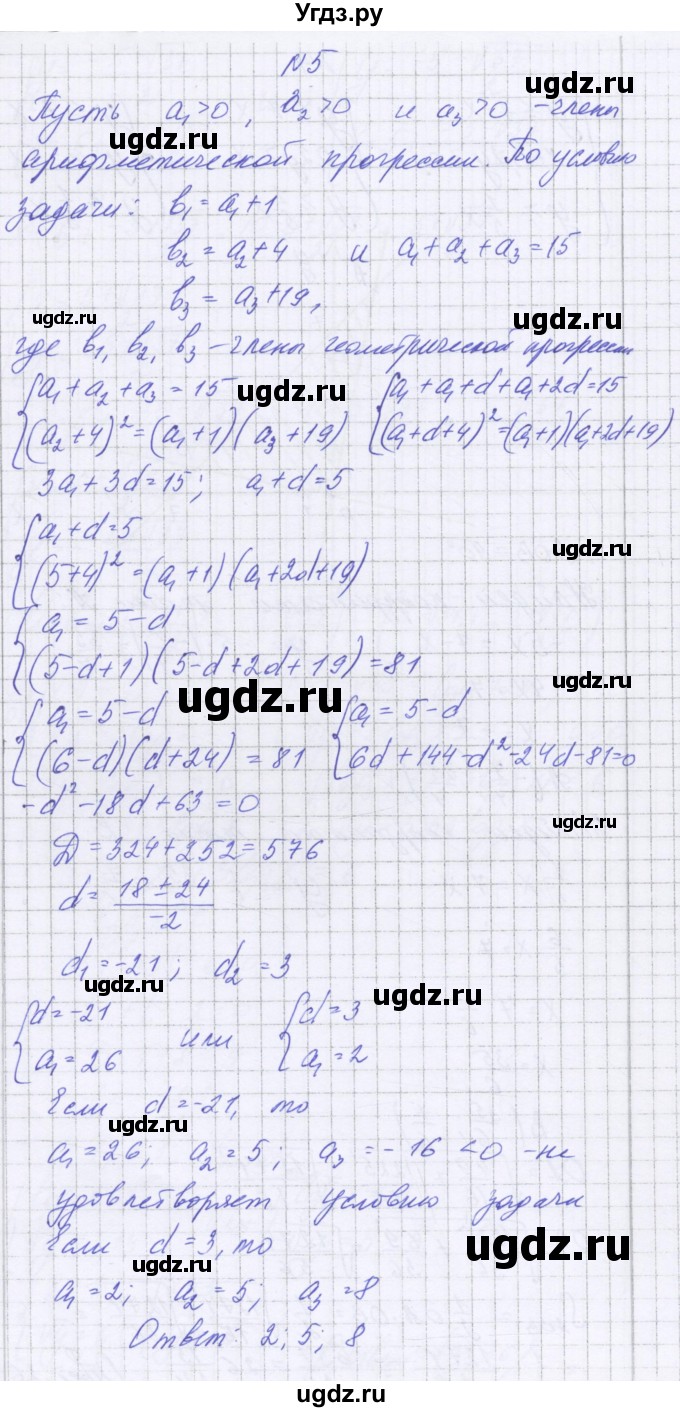 Угдз.ру
N5
Пусть a₁>0, a₂>0 и a₃>0 – члены
ugdz.ru
арифметической прогрессии. По условию
задачи: b₁ = a₁+1
b₂ = a₂+4 и a₁+a₂+a₃=15
b₃ = a₃+19,
ugdz.ru ugdz.ru
где b₁, b₂, b₃ – члены геометрической прогрессии
{a₁+a₂+a₃=15 {a₁+a₁+d+a₁+2d=15
ugdz.ru
(a₂+4)²=(a₁+1)(a₃+19) (a₁+d+4)²=(a₁+1)(a₁+2d+19)
3a₁+3d=15; a₁+d=5
{a₁+d=5
ugdz.ru
(5+4)²=(a₁+1)(a₁+2d+19)
{a₁=5-d
(5-d+1)(5-d+2d+19)=81
ugdz.ru ugdz.ru
{a₁=5-d {a₁=5-d
(6-d)(d+24)=81 6d+144-d²-24d-81=0
-d²-18d+63=0
ugdz.ru
Д=324+252=576
d= 18±24
-2
d₁=-21; d₂=3
ugdz.ru ugdz.ru
{d=-21 или {d=3
a₁=26 a₁=2
Если d=-21, то
ugdz.ru
a₁=26; a₂=5; a₃=-16<0 – не
удовлетворяет условию задачи
Если d=3, то
ugdz.ru ugdz.ru
a₁=2; a₂=5; a₃=8
Ответ: 2; 5; 8
ugdz.ru